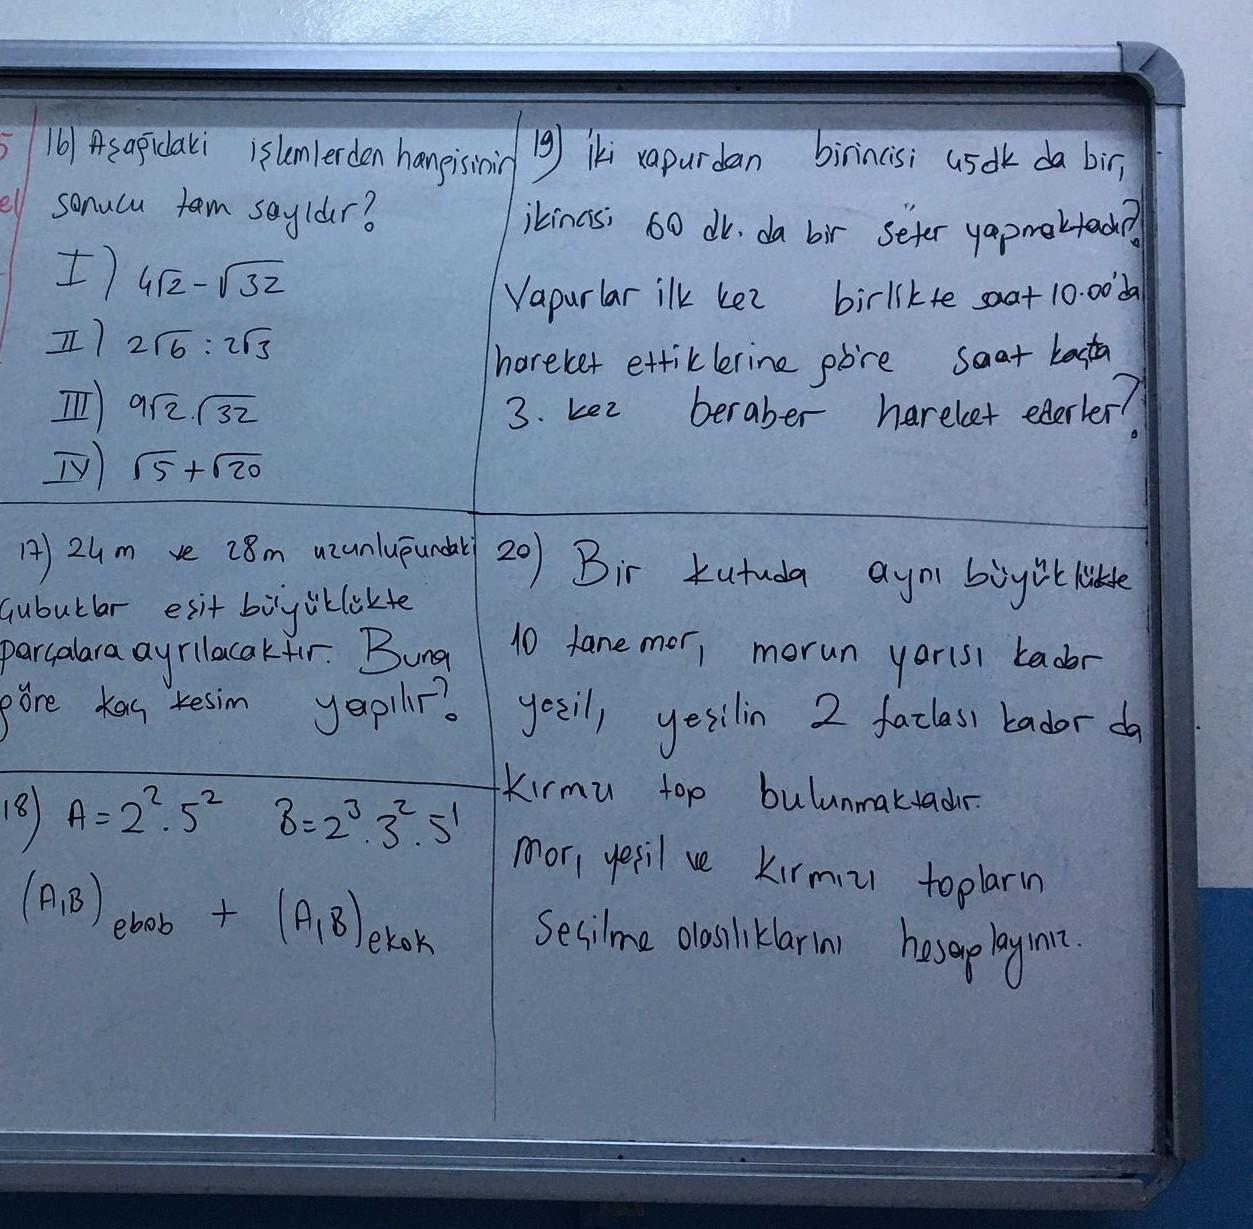 5
el
16) Aşağıdaki işlemlerden hangisinin
sonucu tam sayıdır?
I) 4√2 - √32
II) 2√6 : 2√3
III) 9√2 . √32
IV) √5 + √20
17) 24 m ve 28m uzunluğundaki
Çubuklar eşit büyüklükte
parçalara ayrılacaktır. Buna
göre kaç kesim yapılır?
18) A = 2² . 5² B = 2³ . 3² . 5¹
(A,B)ebob + (A,B)ekok
19) İki vapurdan birincisi 45dk da bir,
ikincisi 60 dk. da bir sefer yapmaktadır?
Vapurlar ilk kez birlikte saat 10.00'da
hareket ettiklerine göre saat kaçta
3. kez beraber hareket ederler?
20) Bir kutuda aynı büyüklükte
10 tane mor, morun yarısı kadar
yeşil, yeşilin 2 fazlası kadar da
kırmızı top bulunmaktadır.
Mor, yeşil ve kırmızı topların
Seçilme olasılıklarını hesaplayınız.